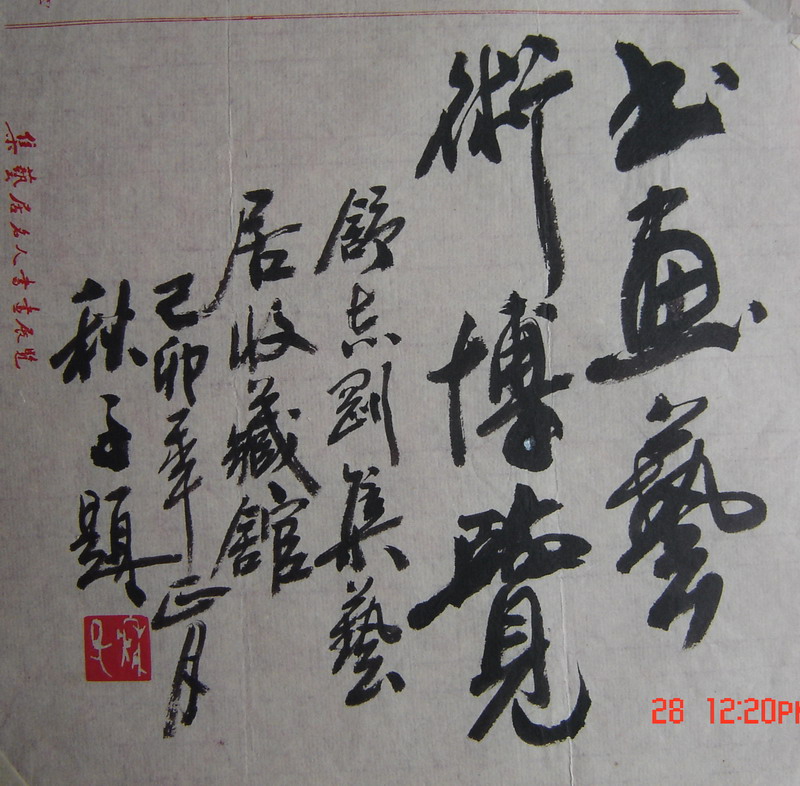 书画藝
術博覽
舒志剛集藝
居收藏館
己卯年正月
秋子題
秋子
集藝居名人書畫展覽
28 12:20PM